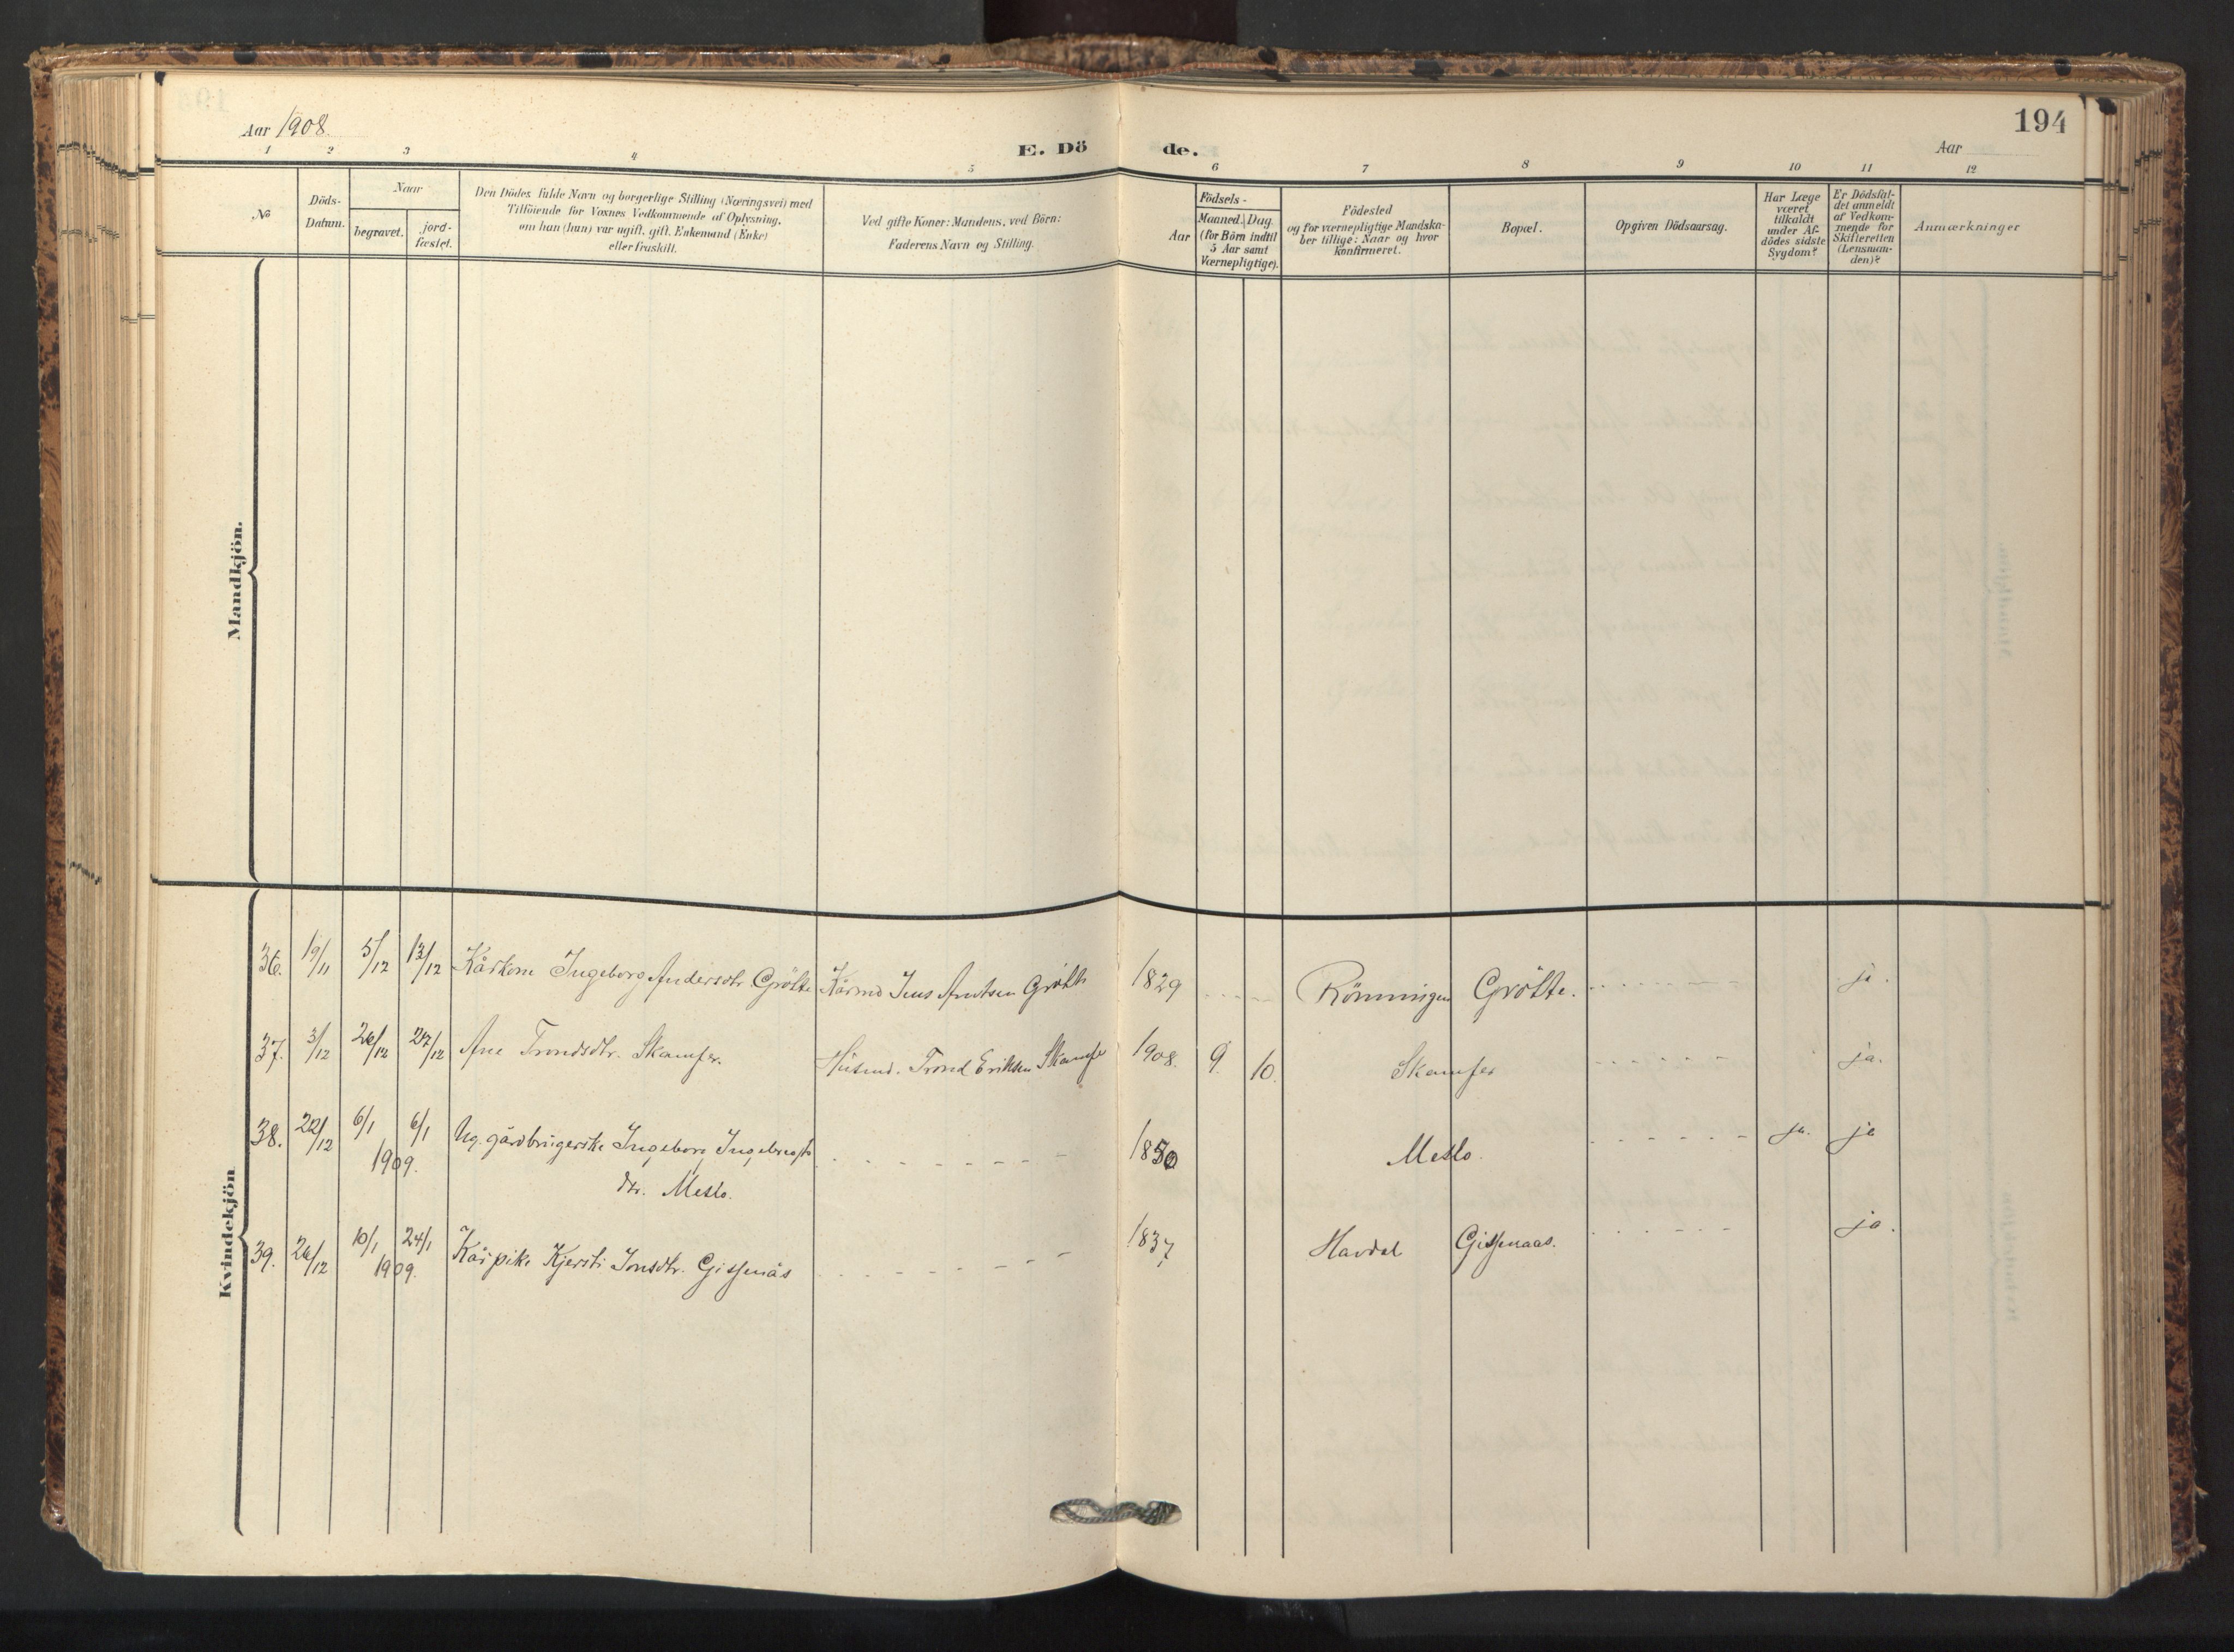 194
Aar 1908.
E. Dö de.
Aar
1 2 3 4 5 6 7 8 9 10 11 12
No
Döds-
Datum.
Naar
begravet.
jord-
fæstet.
Den Dödes fulde Navn og borgerlige Stilling (Næringsvei) med
Tilföiende for Voxnes Vedkommende af Oplysning,
om han (hun) var ugift, gift, Enkemand (Enke)
eller fraskilt.
Ved gifte Koner: Mandens, ved Börn:
Faderens Navn og Stilling.
Aar
Födsels-
Maaned. Dag
(for Börn indtil
5 Aar samt
Værnepligtige).
Födested
og for værnepligtige Mandska-
ber tillige: Naar og hvor
konfirmeret.
Bopæl.
Opgiven Dödsaarsag.
Har Læge
været
tilkaldt
under Af-
dödes sidste
Sygdom?
Er Dödsfal-
det anmeldt
af Vedkom-
mende for
Skifteretten
(Lensman-
den)?
Anmærkninger
Mandkjön.
Kvindekjön
36. 19/11 5/12 13/12 Kårkone Ingeborg Andersdtr Grötte Kårmd Jens Arntsen Grötte 1829 Rönningen Grötte. ja.
37. 3/12 26/12 27/12 Ane Trondsdtr. Skamfer. Husmd. Trond Eriksen Skamfer 1908. 9. 10. Skamfer ja.
38. 22/12 6/1 6/1 Ug. gårdbrugerske Ingeborg Ingebrigts 1850 Meslo. ja. ja
1909. dtr. Meslo.
39. 26/12 10/1 24/1 Kårpike Kjersti Jonsdtr. Gisnås 1837, Havdal Gisnaas. ja.
1909.